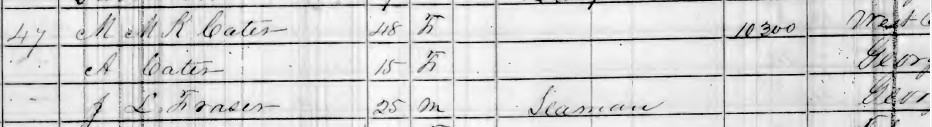 47 M M K Cater 48 F 10300 West
A Cater 15 F Georg
J L Fraser 25 M Seaman Geor